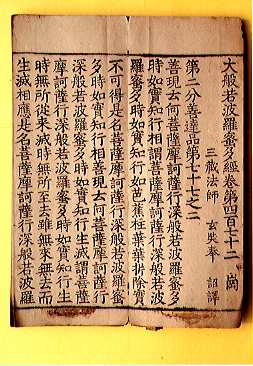 大般若波羅蜜多經卷第四百七十二 崗
三藏法師 玄奘奉 詔譯
第二分善達品第七十七之二
善現云何菩薩摩訶薩行深般若波羅蜜多
時如實知行相謂菩薩摩訶薩行深般若波
羅蜜多時如實知行如芭蕉柱葉葉排除實
不可得是名菩薩摩訶薩行深般若波羅蜜
多時如實知行相善現云何菩薩摩訶薩行
深般若波羅蜜多時如實知行生滅謂菩薩
摩訶薩行深般若波羅蜜多時如實知行生
時無所從來滅時無所至去雖無來無去而
生滅相應是名菩薩摩訶薩行深般若波羅